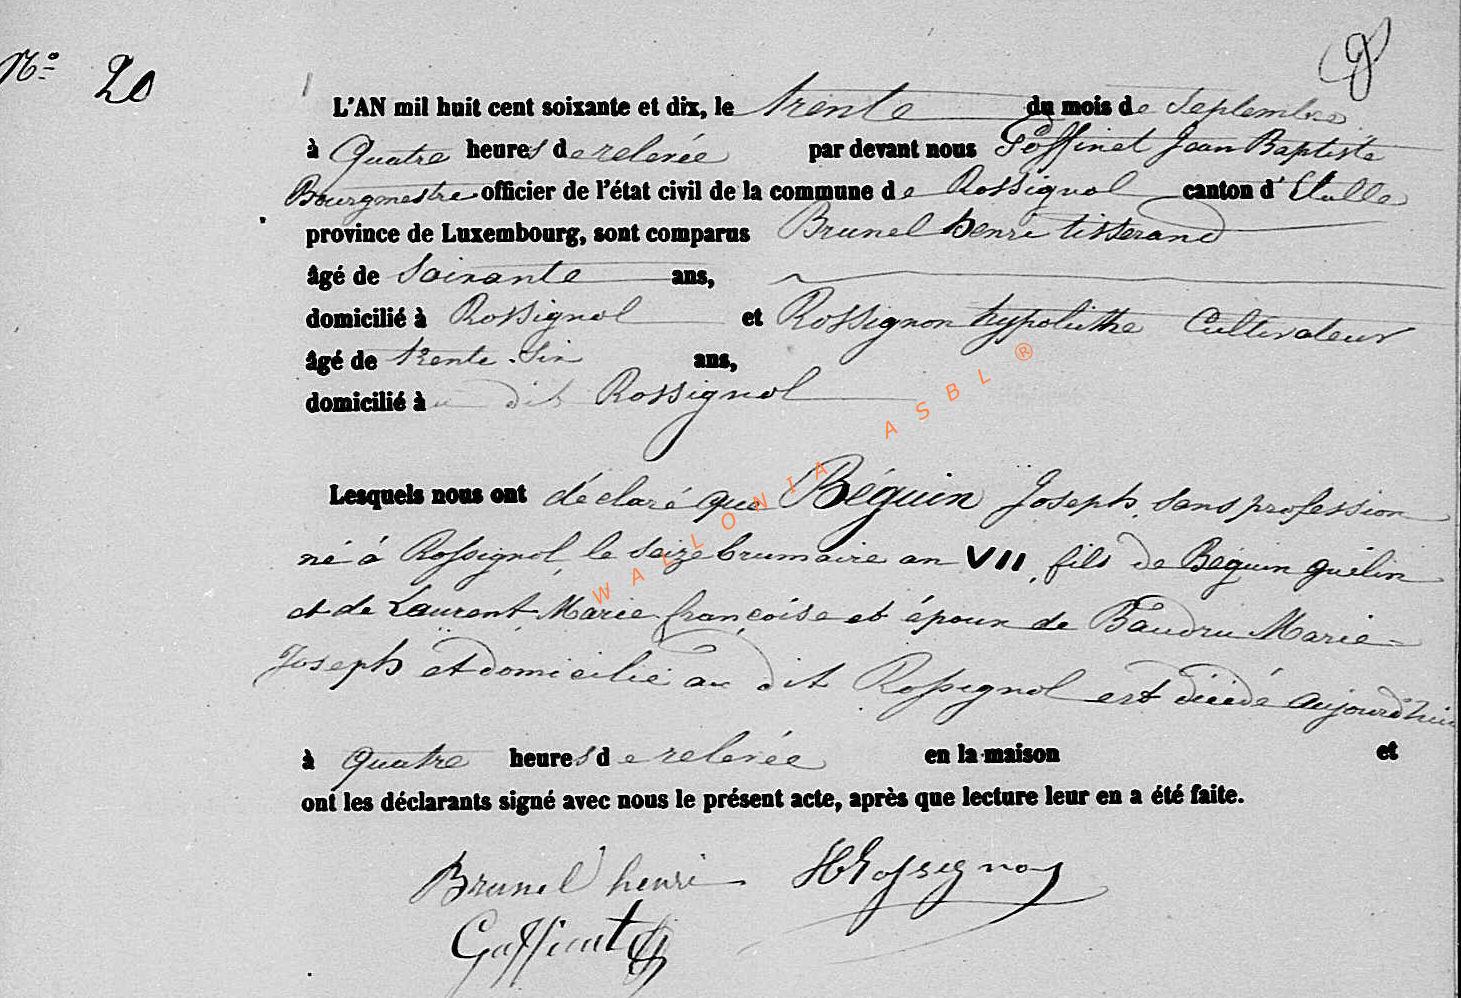 No 20
L'AN mil huit cent soixante et dix, le trente du mois de Septembre
à Quatre heures de relevée par devant nous Goffinet Jean Baptiste
Bourgmestre officier de l'état civil de la commune de Rossignol canton d'Etalle
province de Luxembourg, sont comparus Brunel henri tisserand
âgé de Soixante ans,
domicilié à Rossignol et Rossignon hypolithe Cultivateur
âgé de trente-six ans,
domicilié à dit Rossignol
Lesquels nous ont déclaré que Béguin Joseph, sans profession
né à Rossignol, le seize brumaire an VII, fils de Béguin guélin
et de Laurent, Marie françoise et époux de Baudru Marie-
Joseph et domicilié au dit Rossignol est décédé aujourd'hui
à quatre heures de relevée en la maison et
ont les déclarants signé avec nous le présent acte, après que lecture leur en a été faite.
Brunel henri HRossignon
Goffinet
WALLONIA ASBL ®